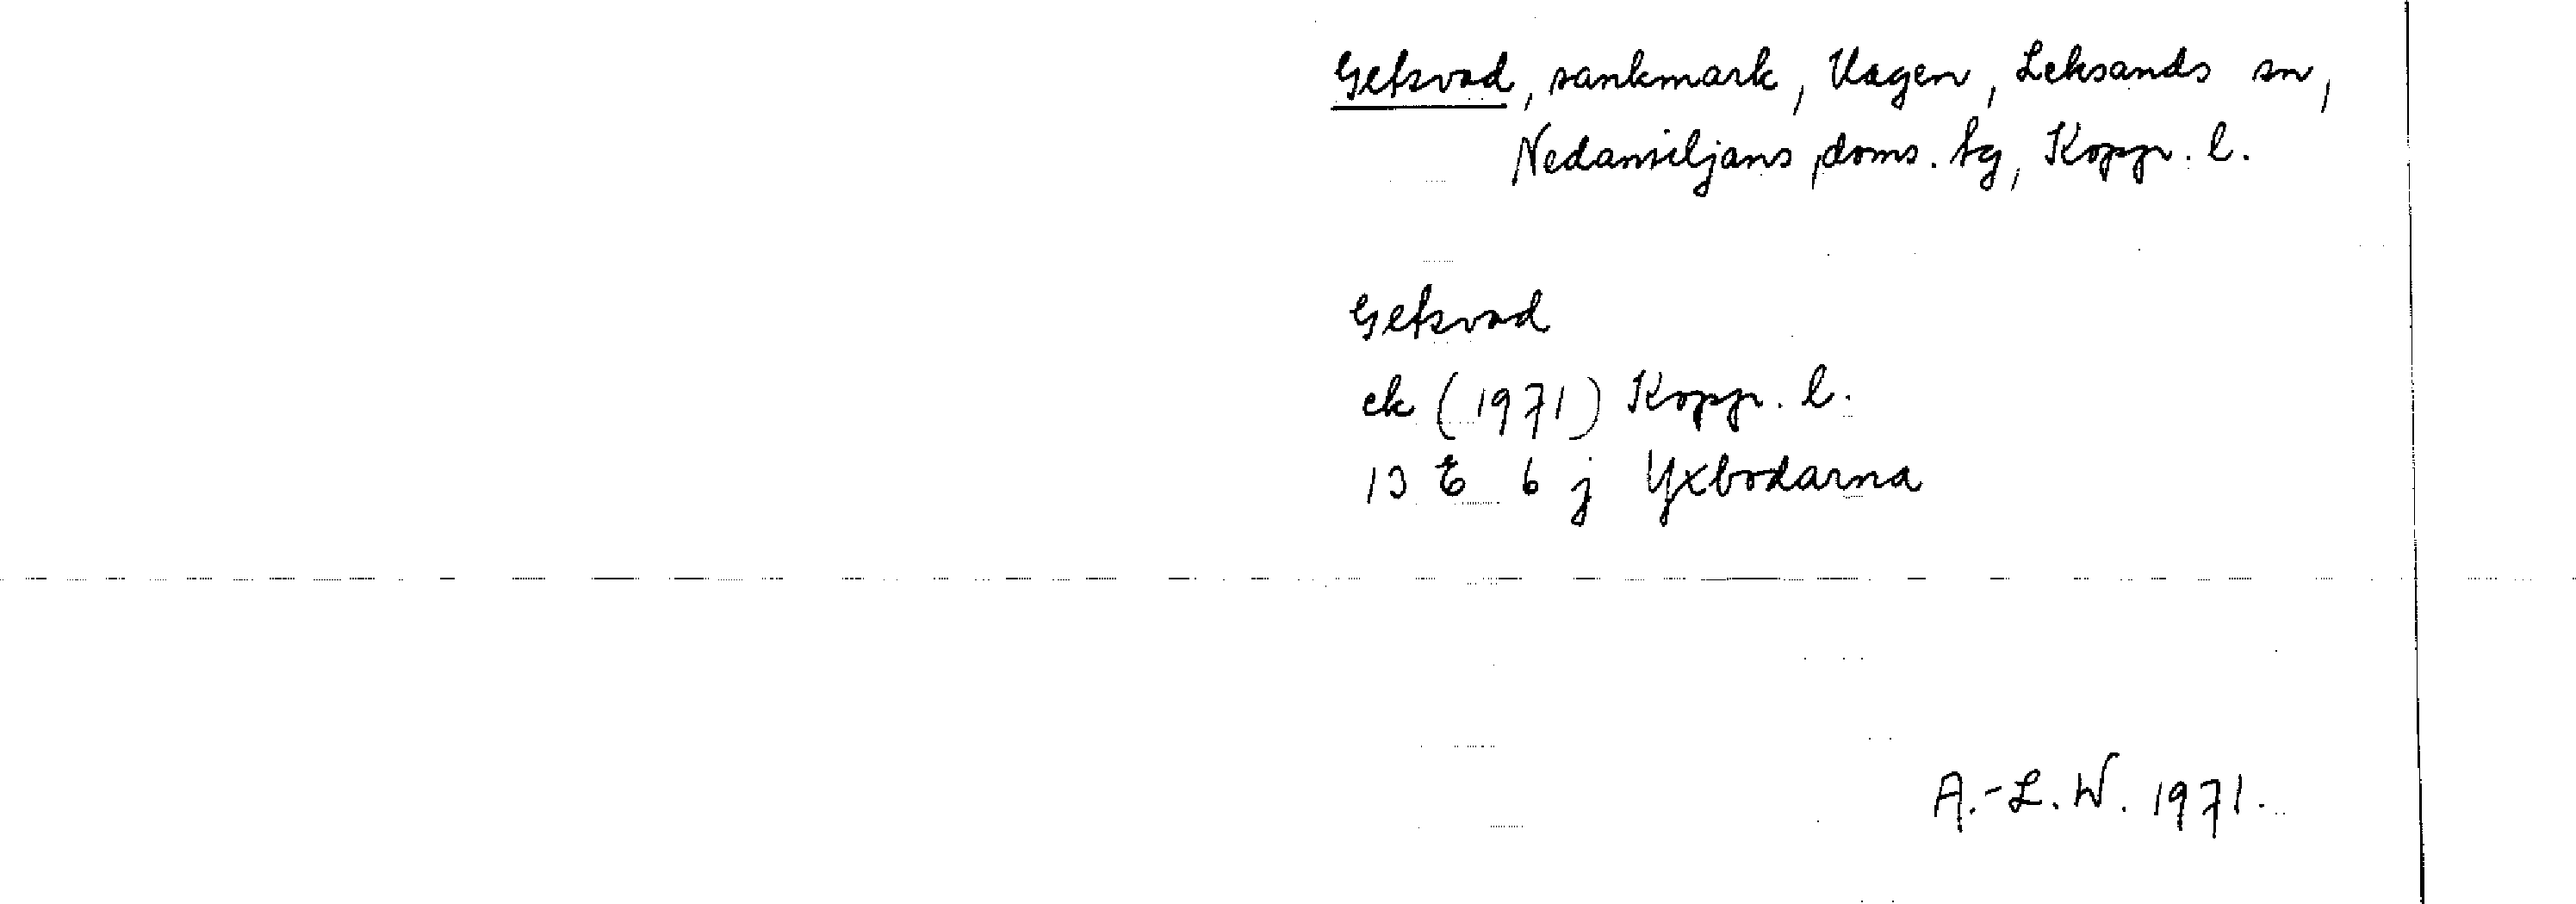 Getsvad, sankmark, Ullagen, Leksands sn,
Nedansiljans doms. tg, Kopp. l.
Getsvad
ek (1971) Kopp. l.
13 E 6 j Yxbodarna
A.-L. W. 1971.